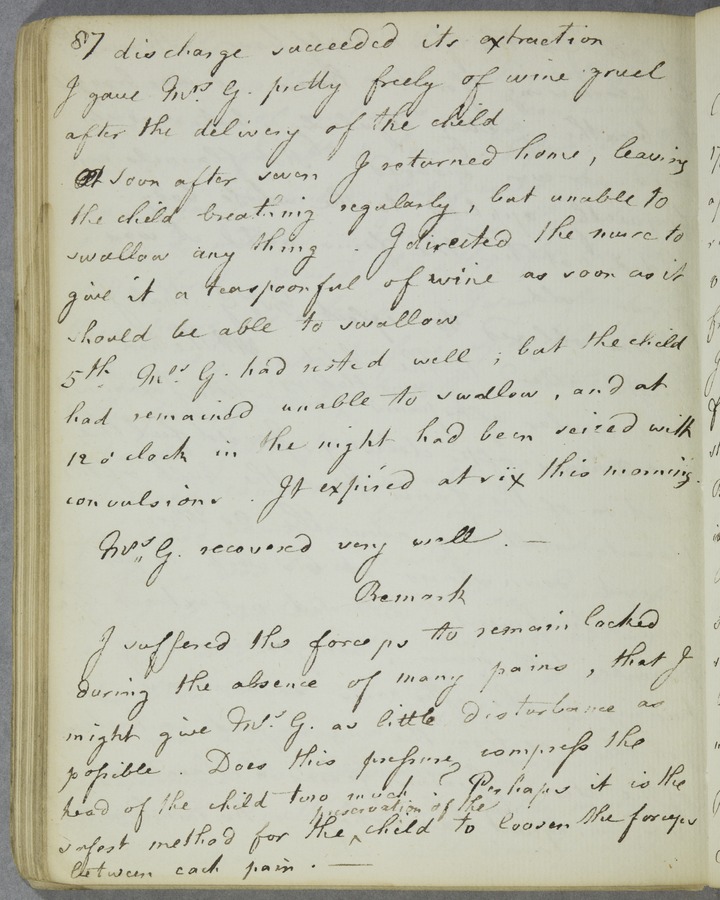 87 discharge succeeded its extraction
I gave Mrs. G. pretty freely of wine gruel
after the delivery of the child
soon after seven I returned home, leaving
the child breathing regularly, but unable to
swallow any thing. I directed the nurse to
give it a teaspoonful of wine as soon as it
should be able to swallow
5th. Mrs. G. had rested well; but the child
had remained unable to swallow, and at
12 o'clock in the night had been seized with
convulsions. It expired at six this morning.
Mrs. G. recovered very well. —
Remark
I suffered the forceps to remain locked
during the absence of many pains, that I
might give Mrs. G. as little disturbance as
possible. Does this pressure compress the
head of the child two much? Perhaps it is the
preservation of the
safest method for the ^ child to loosen the forceps
between each pain. —